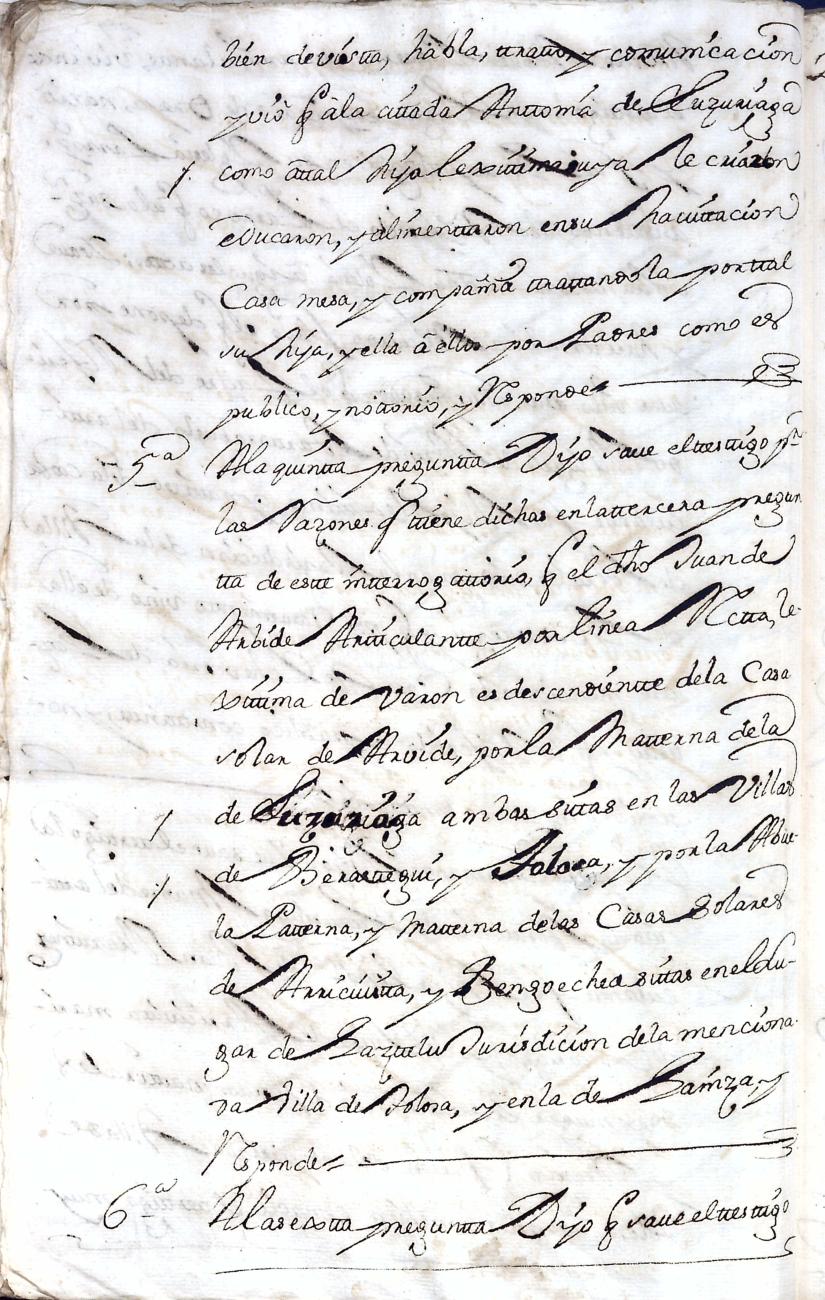 bien de vistta, habla, ttratto, y comunicacion
y vió q̃ à la cittada Anttonia de Luzuriaga
como â ttal hija lexittima suya le criaron
educaron, y alimenttaron en su havittacion
Casa mesa, y compañia ttrattandola por ttal
su hija, y ella â ellos por Padres como es
publico, y nottorio, y Responde
5ª A la quintta preguntta Dijo save el testtigo pr
las Razones q̃ ttiene dichas en la ttercera pregun
tta de estte interrogattorio, q̃ el dho Juan de
Arbide Artticulantte por linea Rectta, le-
xittima de varon es descendientte de la Casa
solar de Arvide, por la Matterna de la
de Luzuriaga ambas sittas en las Villas
de Berasttegui, y Tolosa, y por la Abue
la Patterna, y Matterna de las Casas Solares
de Arricivitta, y Bengoechea sittas en el Lu-
gar de Gazttelu Jurisdicion de la menciona-
da Villa de Tolosa, y en la de Gainza, y
Responde
6ª A la sextta preguntta Dijo q̃ save el ttesttigo